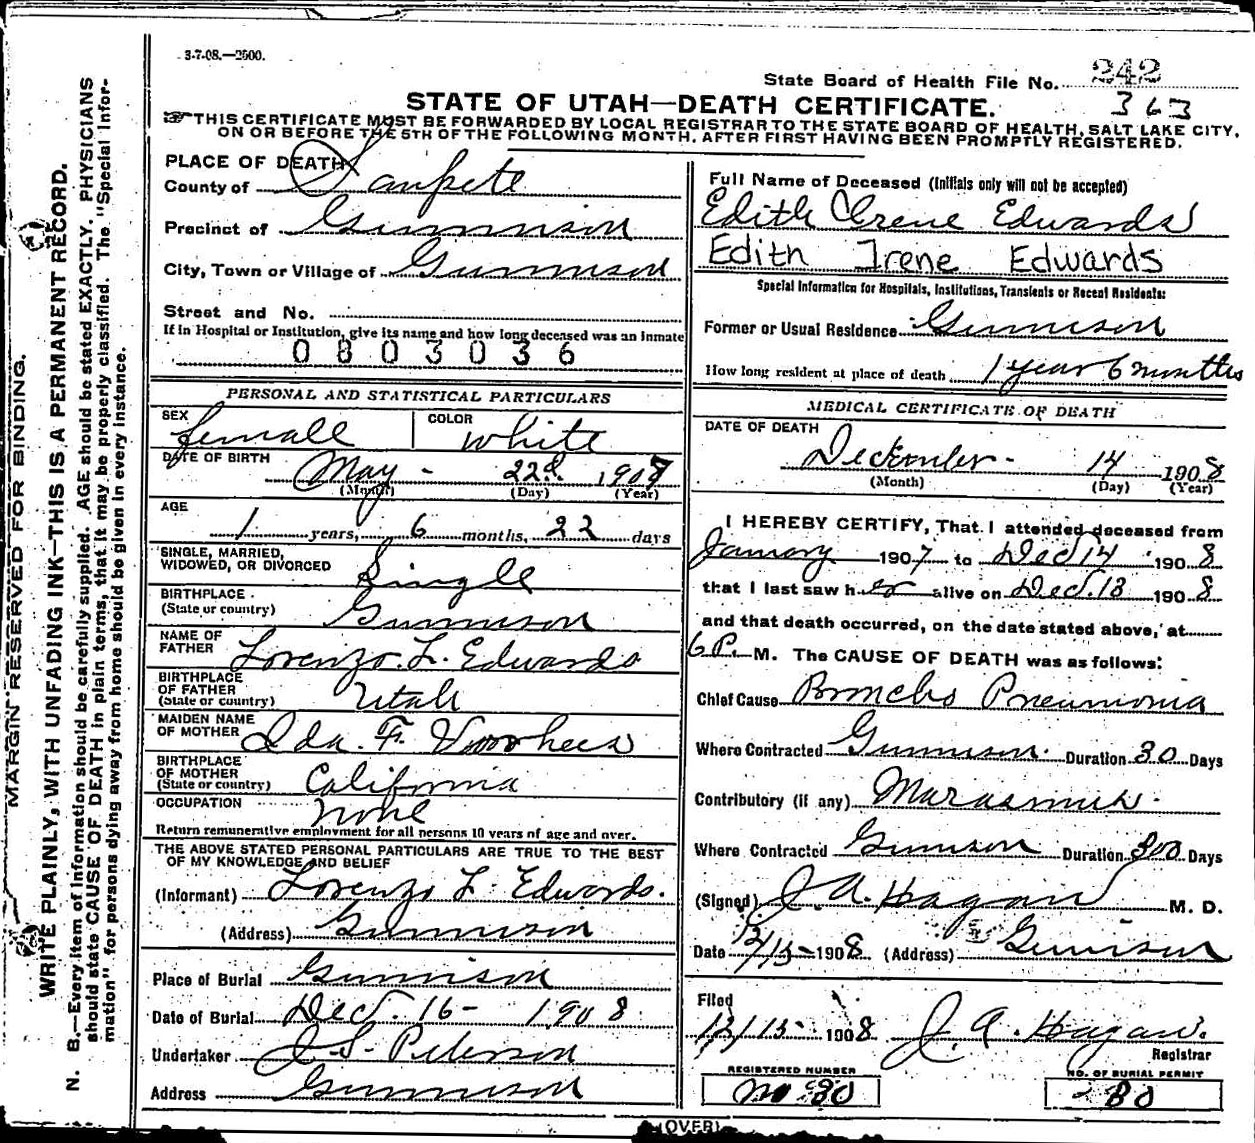 3-7-08.—2500.
State Board of Health File No. 242
363
STATE OF UTAH—DEATH CERTIFICATE.
☞THIS CERTIFICATE MUST BE FORWARDED BY LOCAL REGISTRAR TO THE STATE BOARD OF HEALTH, SALT LAKE CITY,
ON OR BEFORE THE 5TH OF THE FOLLOWING MONTH, AFTER FIRST HAVING BEEN PROMPTLY REGISTERED.
PLACE OF DEATH
County of Sanpete
Precinct of Gunnison
City, Town or Village of Gunnison
Street and No.
If in Hospital or Institution, give its name and how long deceased was an inmate
0803036
PERSONAL AND STATISTICAL PARTICULARS
SEX female COLOR white
DATE OF BIRTH May - 22d. 1907
(Month) (Day) (Year)
AGE
1 years, 6 months, 22 days
SINGLE, MARRIED,
WIDOWED, OR DIVORCED Single
BIRTHPLACE
(State or country) Gunnison
NAME OF
FATHER Lorenzo. L. Edwards
BIRTHPLACE
OF FATHER
(State or country) Utah
MAIDEN NAME
OF MOTHER Ida. F. Voorhees
BIRTHPLACE
OF MOTHER
(State or country) California
OCCUPATION None
Return remunerative employment for all persons 10 years of age and over.
THE ABOVE STATED PERSONAL PARTICULARS ARE TRUE TO THE BEST
OF MY KNOWLEDGE AND BELIEF
(Informant) Lorenzo L. Edwards.
(Address) Gunnison
Place of Burial Gunnison
Date of Burial Dec. 16 - 1908
Undertaker J S. Peterson
Address Gunnison
Full Name of Deceased (Initials only will not be accepted)
Edith Irene Edwards
Edith Irene Edwards
Special Information for Hospitals, Institutions, Transients or Recent Residents:
Former or Usual Residence Gunnison
How long resident at place of death 1 year 6 months
MEDICAL CERTIFICATE OF DEATH
DATE OF DEATH
December - 14 1908
(Month) (Day) (Year)
I HEREBY CERTIFY, That I attended deceased from
January 1907 to Dec 14 1908
that I last saw her alive on Dec. 13 1908
and that death occurred, on the date stated above, at
6 P. M. The CAUSE OF DEATH was as follows:
Chief Cause Broncho Pneumonia
Where Contracted Gunnison. Duration 30 Days
Contributory (if any) Marasmus.
Where Contracted Gunnison Duration 300 Days
(Signed) J. A. Hagan M. D.
Date 12/15-1908 (Address) Gunnison
Filed
12/15- 1908 J. A. Hagan.
Registrar
REGISTERED NUMBER
No 80
NO. OF BURIAL PERMIT
80
(OVER)
MARGIN RESERVED FOR BINDING.
WRITE PLAINLY, WITH UNFADING INK—THIS IS A PERMANENT RECORD.
N. B.—Every item of information should be carefully supplied. AGE should be stated EXACTLY. PHYSICIANS
should state CAUSE OF DEATH in plain terms, that it may be properly classified. The "Special Infor-
mation" for persons dying away from home should be given in every instance.